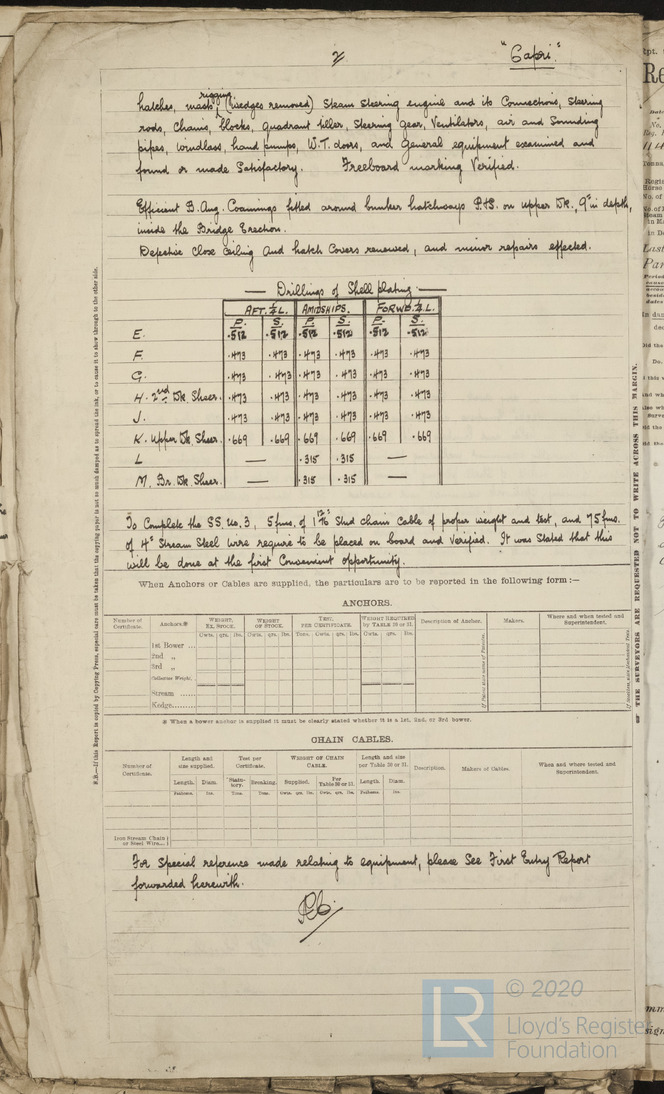 2
"Capri."
rigging,
hatches, masts, (wedges removed) Steam Steering engine and its Connections, Steering
rods, Chains, blocks, Quadrant tiller, Steering Gear, Ventilators, air and Sounding
pipes, windlass, hand pumps, W.T. doors, and General equipment examined and
found or made Satisfactory. Freeboard marking Verified.
Efficient B. Ang. Coamings fitted around bunker hatchways P.&S. on upper Dk., 9" in depth,
inside the Bridge Erection.
Defective Close Ceiling and hatch Covers renewed, and minor repairs effected.
Drillings of Shell plating
AFT. ¼ L. AMIDSHIPS. FORWD. ¼ L.
P. S. P. S. P. S.
E. .512 .512 .512 .512 .512 .512
F. .473 .473 .473 .473 .473 .473
G. .473 .473 .473 .473 .473 .473
H. 2nd Dk Sheer. .473 .473 .473 .473 .473 .473
J. .473 .473 .473 .473 .473 .473
K. Upper Dk. Sheer. .669 .669 .669 .669 .669 .669
L — .315 .315 —
M. Br. Dk Sheer. — .315 .315 —
To Complete the SS. No. 3, 5 fms. of 1 12/16" Stud chain Cable of proper weight and test, and 75 fms.
of 4" Stream Steel wire require to be placed on board and Verified. It was Stated that this
will be done at the first Convenient opportunity.
When Anchors or Cables are supplied, the particulars are to be reported in the following form :—
ANCHORS.
Number of Certificate. Anchors.* WEIGHT, EX. STOCK. WEIGHT OF STOCK. TEST, PER CERTIFICATE. WEIGHT REQUIRED by TABLE 30 or 31. Description of Anchor. Makers. Where and when tested and Superintendent.
Cwts. qrs. lbs. Cwts. qrs. lbs. Tons. Cwts. qrs. lbs. Cwts. qrs. lbs.
1st Bower ...
2nd „
3rd „
Collective Weight.
Stream ......
Kedge........
* When a bower anchor is supplied it must be clearly stated whether it is a 1st, 2nd, or 3rd bower.
CHAIN CABLES.
Number of Certificate. Length and size supplied. Test per Certificate. WEIGHT OF CHAIN CABLE. Length and size per Table 30 or 31. Description. Makers of Cables. When and where tested and Superintendent.
Length. Diam. Statutory. Breaking. Supplied. Per Table 30 or 31. Length. Diam.
Fathoms. Ins. Tons. Tons. Cwts. qrs. lbs. Cwts. qrs. lbs. Fathoms. Ins.
Iron Stream Chain
or Steel Wire...
For Special reference made relating to equipment, please See First Entry Report
forwarded herewith.
N.B.—If this Report is copied by Copying Press, especial care must be taken that the copying paper is not so much damped as to spread the ink, or to cause it to show through to the other side.
THE SURVEYORS ARE REQUESTED NOT TO WRITE ACROSS THIS MARGIN.
LR
© 2020
Lloyd's Register
Foundation